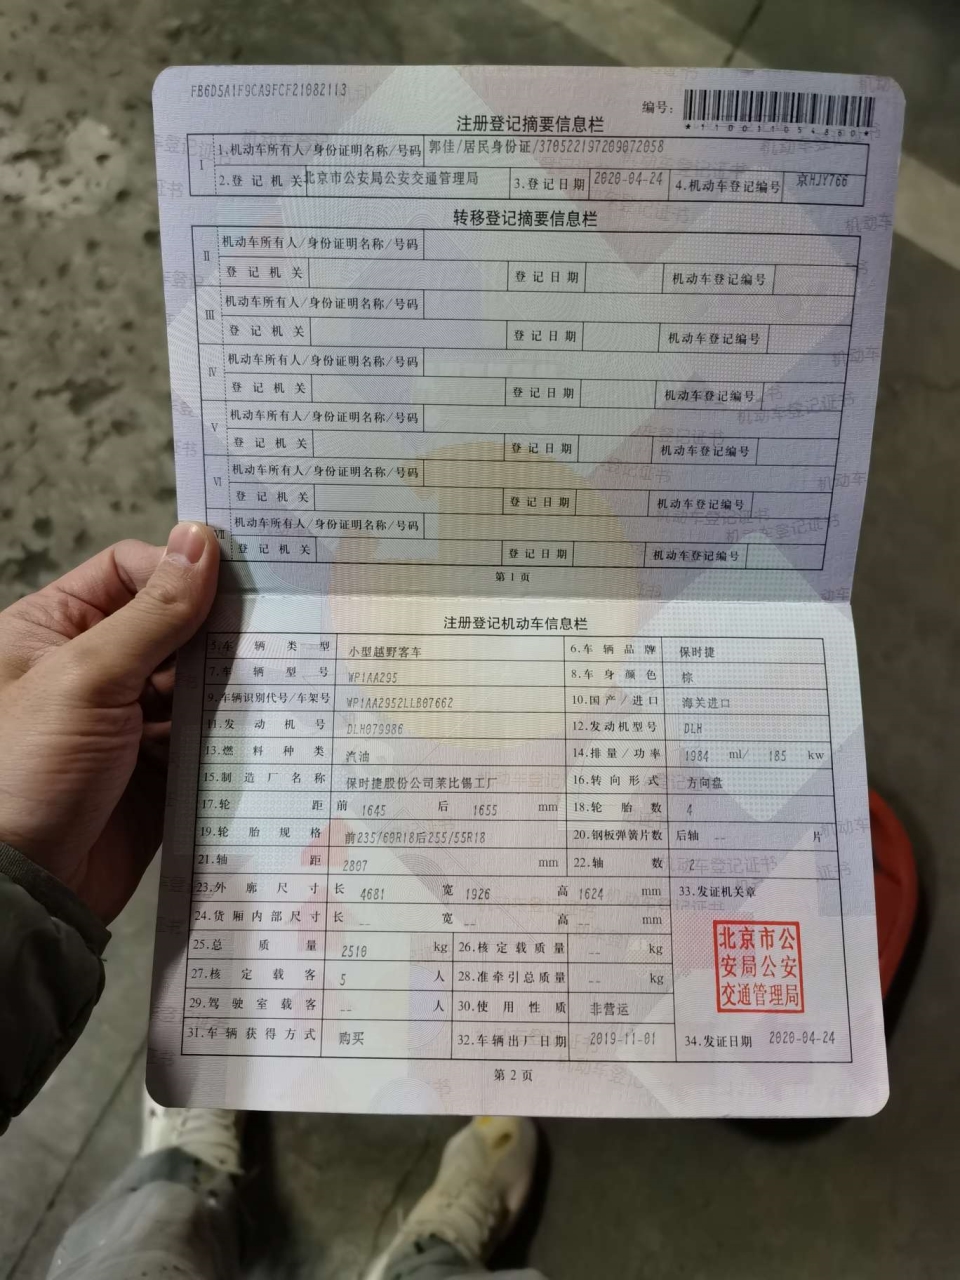 FB6D5A1F9CA9FCF21082113
编号:
*110011054860*
注册登记摘要信息栏
I 1.机动车所有人/身份证明名称/号码 郭佳/居民身份证/370522197209072058
2.登记机关 北京市公安局公安交通管理局 3.登记日期 2020-04-24 4.机动车登记编号 京HJY766
转移登记摘要信息栏
II 机动车所有人/身份证明名称/号码
登记机关 登记日期 机动车登记编号
III 机动车所有人/身份证明名称/号码
登记机关 登记日期 机动车登记编号
IV 机动车所有人/身份证明名称/号码
登记机关 登记日期 机动车登记编号
V 机动车所有人/身份证明名称/号码
登记机关 登记日期 机动车登记编号
VI 机动车所有人/身份证明名称/号码
登记机关 登记日期 机动车登记编号
VII 机动车所有人/身份证明名称/号码
登记机关 登记日期 机动车登记编号
第1页
注册登记机动车信息栏
5.车辆类型 小型越野客车 6.车辆品牌 保时捷
7.车辆型号 WP1AA295 8.车身颜色 棕
9.车辆识别代号/车架号 WP1AA2952LLB07662 10.国产/进口 海关进口
11.发动机号 DLH079986 12.发动机型号 DLH
13.燃料种类 汽油 14.排量/功率 1984 ml/ 185 kw
15.制造厂名称 保时捷股份公司莱比锡工厂 16.转向形式 方向盘
17.轮距 前 1645 后 1655 mm 18.轮胎数 4
19.轮胎规格 前235/60R18后255/55R18 20.钢板弹簧片数 后轴 -- 片
21.轴距 2807 mm 22.轴数 2
23.外廓尺寸 长 4681 宽 1926 高 1624 mm 33.发证机关章
24.货厢内部尺寸 长 -- 宽 -- 高 -- mm
25.总质量 2510 kg 26.核定载质量 -- kg
27.核定载客 5 人 28.准牵引总质量 -- kg
北京市公
安局公安
交通管理局
29.驾驶室载客 -- 人 30.使用性质 非营运
31.车辆获得方式 购买 32.车辆出厂日期 2019-11-01 34.发证日期 2020-04-24
第2页